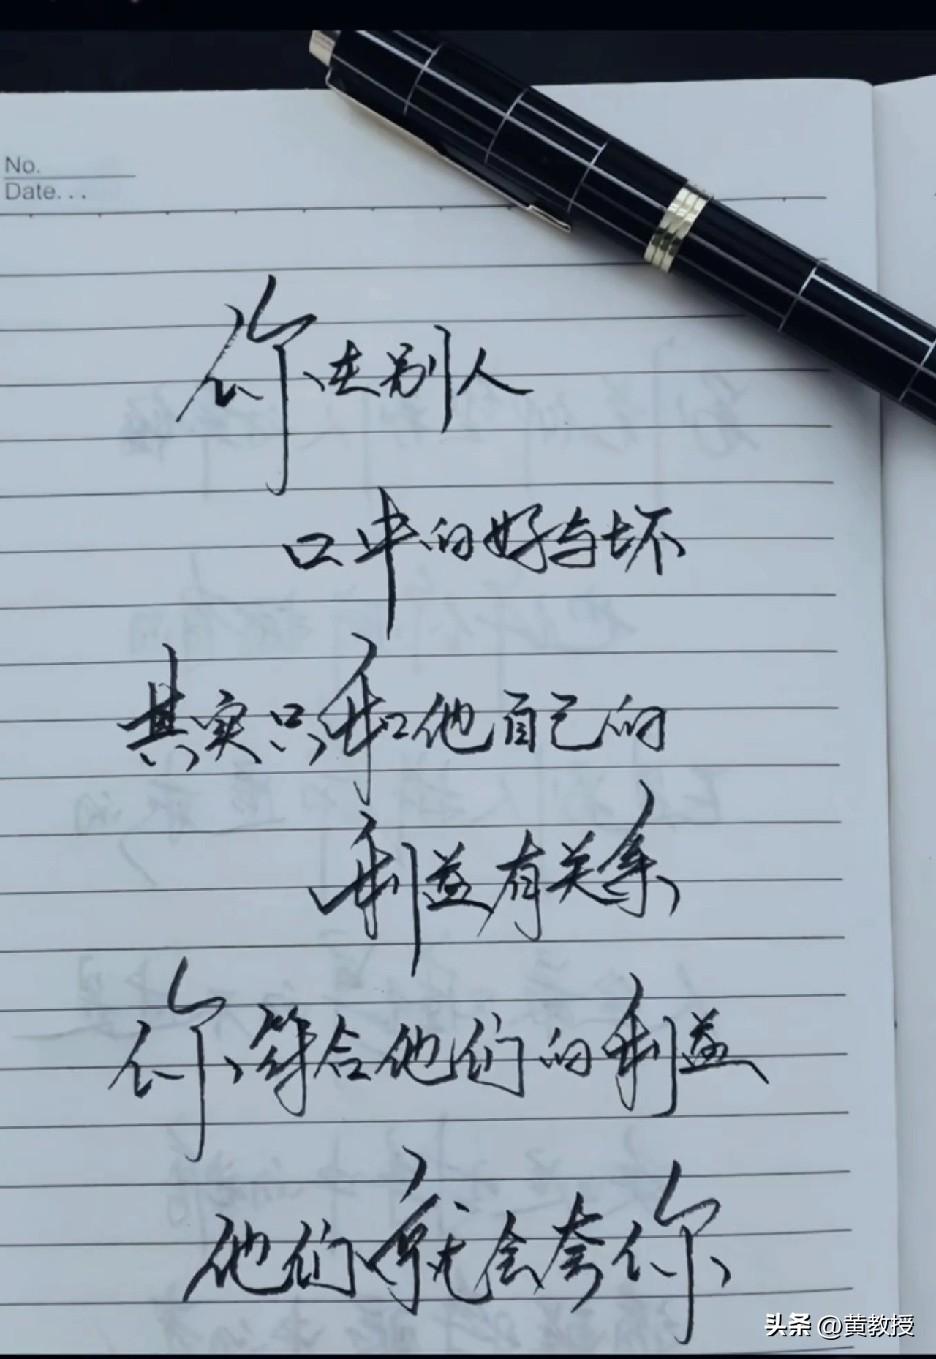 No.
Date...
你在别人
口中的好与坏
其实只和他自己的
利益有关系
你符合他们的利益
他们就会夸你
头条 @黄教授